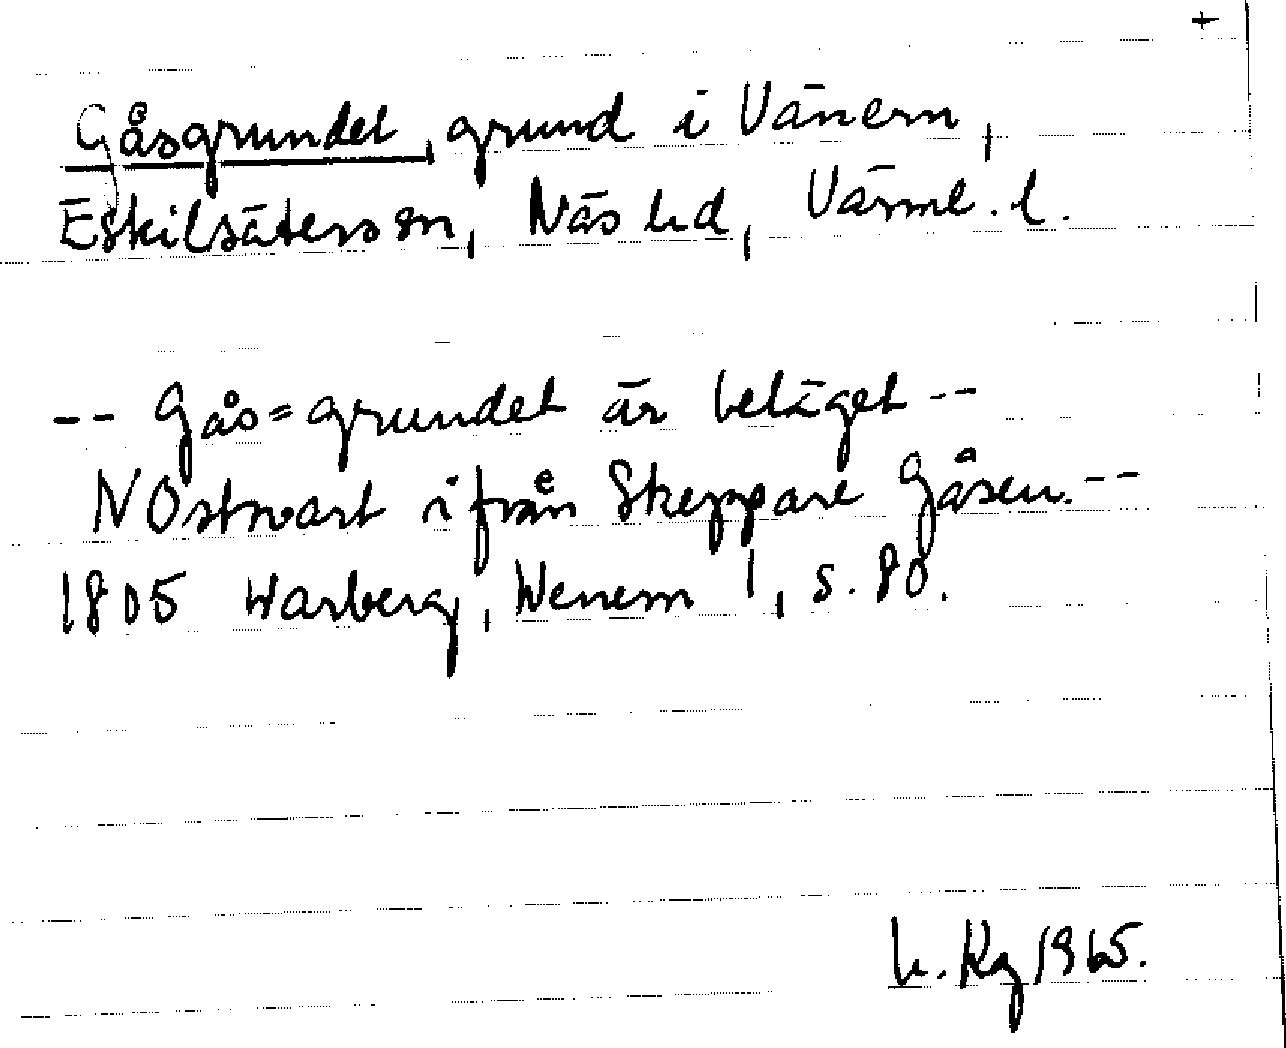 +
Gåsgrundet, grund i Vänern,
Eskilsäters sn, Näs hd, Värml. l.
-- Gås=grundet är beläget --
NOstwart ifrån Skeppare Gåsen. --
1805 Warberg, Wenern 1, s. 80.
h. Kg 1965.